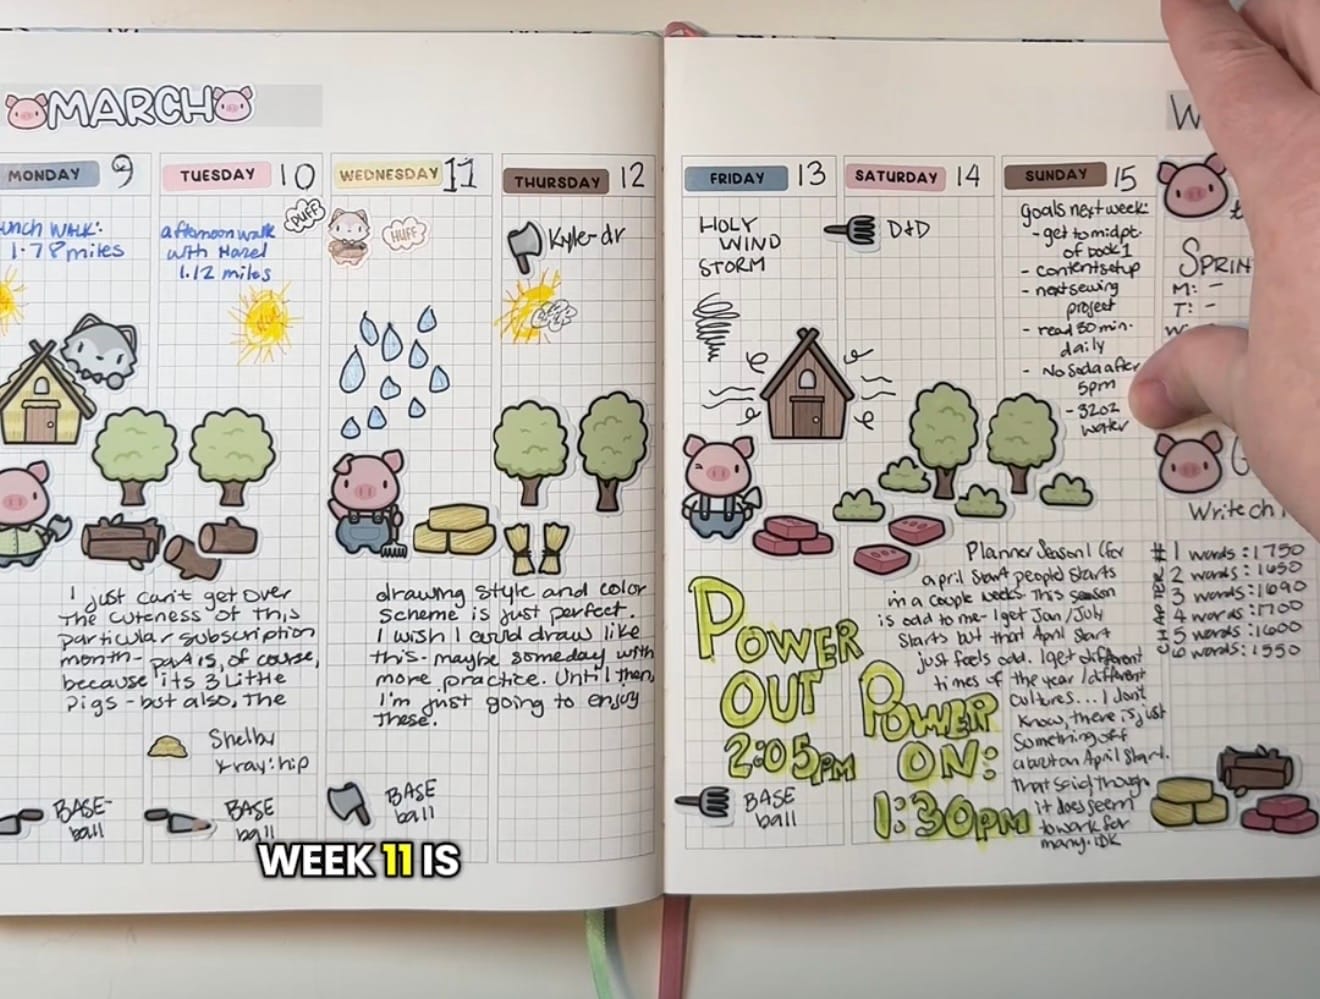 MARCH
MONDAY 9
WALK:
1.78 miles
BASE-
ball
TUESDAY 10
PUFF
afternoon walk
with Hazel
1.12 miles
I just can't get over
the cuteness of this
particular subscription
month- part is, of course,
because its 3 Little
Pigs - but also, the
Shelby
xray: hip
BASE
ball
WEDNESDAY 11
HUFF
drawing style and color
scheme is just perfect.
I wish I could draw like
this- maybe someday with
more practice. Until then,
I'm just going to enjoy
these.
BASE
ball
THURSDAY 12
Kyle-dr
FRIDAY 13
HOLY
WIND
STORM
POWER
OUT
2:05PM
BASE
ball
SATURDAY 14
D+D
POWER
ON:
1:30PM
Planner Season! (for
april start people) starts
in a couple weeks. This season
is odd to me- I get Jan/July
starts but that April start
just feels odd. I get different
times of the year/different
cultures... I don't
know, there is just
something off
about an April start.
that said though
it does seem
to work for
many. IDK
SUNDAY 15
goals next week:
- get to midpt.
of book 1
- content setup
- next sewing
project
- read 30 min.
daily
- No soda after
5pm
- 32oz
water
W
SPRIN
M: -
T: -
W
Write ch
CHAPTER
#1 words: 1750
2 words: 1650
3 words: 1690
4 words: 1700
5 words: 1600
6 words: 1550
WEEK 11 IS